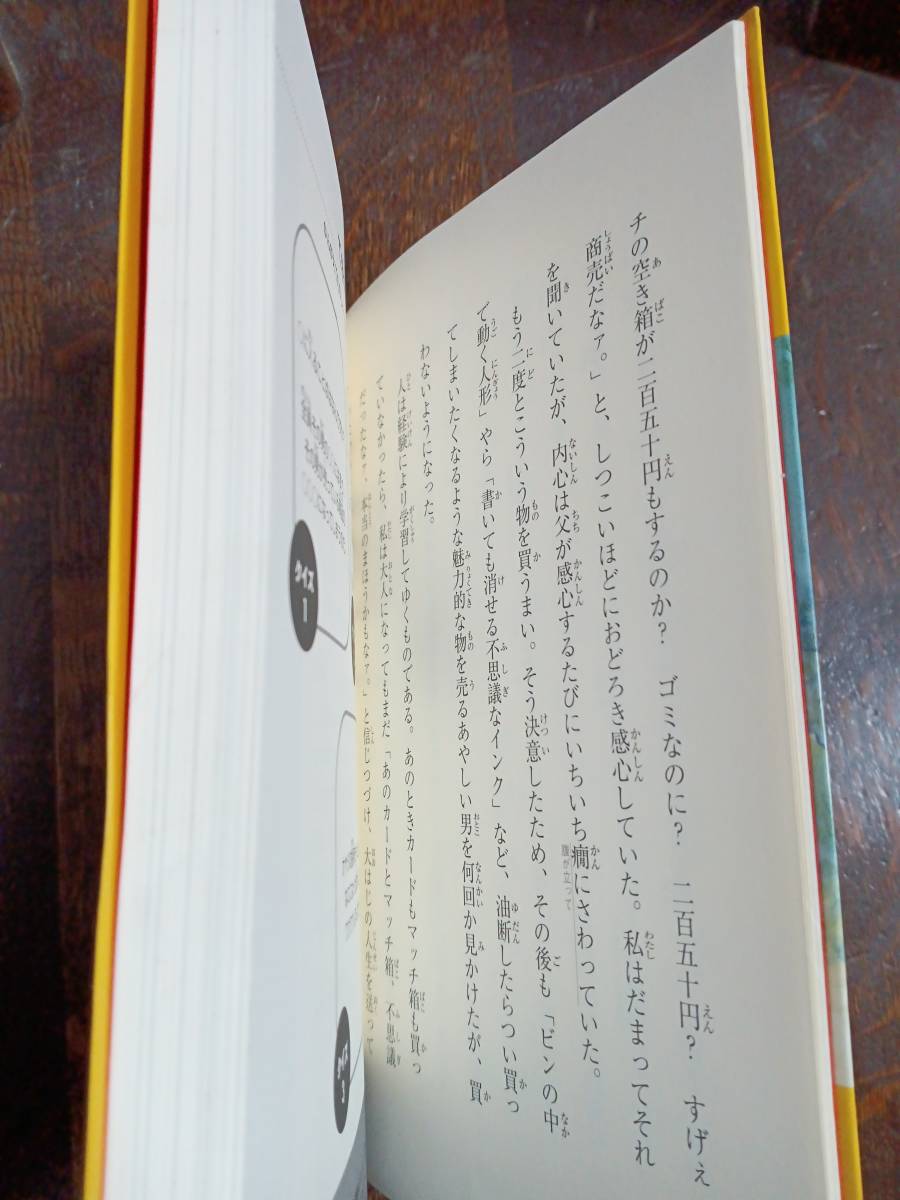 チの空き箱が二百五十円もするのか？　ゴミなのに？　二百五十円？　すげぇ
商売だなァ。」と、しつこいほどにおどろき感心していた。私はだまってそれ
を聞いていたが、内心は父が感心するたびにいちいち癇にさわっていた。
腹が立って
もう二度とこういう物を買うまい。そう決意したため、その後も「ビンの中
で動く人形」やら「書いても消せる不思議なインク」など、油断したらつい買っ
てしまいたくなるような魅力的な物を売るあやしい男を何回か見かけたが、買
わないようになった。
人は経験により学習してゆくものである。あのときカードもマッチ箱も買っ
ていなかったら、私は大人になってもまだ「あのカードとマッチ箱、不思議
だったなァ、本当のまほうかもなァ。」と信じつづけ、大はじの人生を送って
クイズ
1
クイズ
3